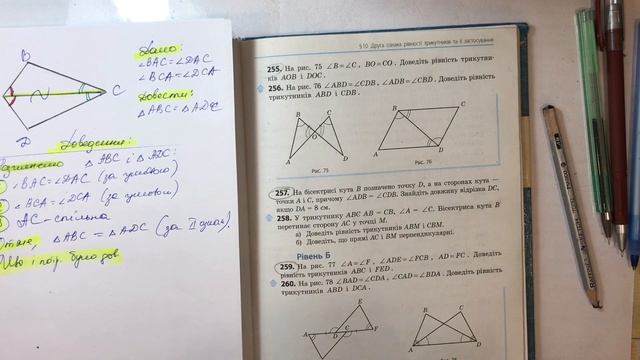 B
C
Дано:
∠BAC=∠DAC
∠BCA=∠DCA
Довести:
△ABC=△ADC
Доведення:
△ABC і △ADC:
∠BAC=∠DAC (за умовою)
∠BCA=∠DCA (за умовою)
AC-спільна
△ABC = △ADC (за II ознак).
§ 10. Друга ознака рівності трикутників та її застосування
255. На рис. 75 ∠B=∠C, BO=CO. Доведіть рівність трикутни-
ків AOB і DOC.
256. На рис. 76 ∠ABD=∠CDB, ∠ADB=∠CBD. Доведіть рівність
трикутників ABD і CDB.
B C
O
A D
Рис. 75
B C
A D
Рис. 76
257. На бісектрисі кута B позначено точку D, а на сторонах кута —
точки A і C, причому ∠ADB = ∠CDB. Знайдіть довжину відрізка DC,
якщо DA = 8 см.
258. У трикутнику ABC AB = CB, ∠A = ∠C. Бісектриса кута B
перетинає сторону AC у точці M.
а) Доведіть рівність трикутників ABM і CBM.
б) Доведіть, що прямі AC і BM перпендикулярні.
Рівень Б
259. На рис. 77 ∠A=∠F, ∠ADE=∠FCB, AD=FC. Доведіть
рівність трикутників ABC і FED.
260. На рис. 78 ∠BAD=∠CDA, ∠CAD=∠BDA. Доведіть рівність
трикутників ABD і DCA.
E
A D C F
B C
A D